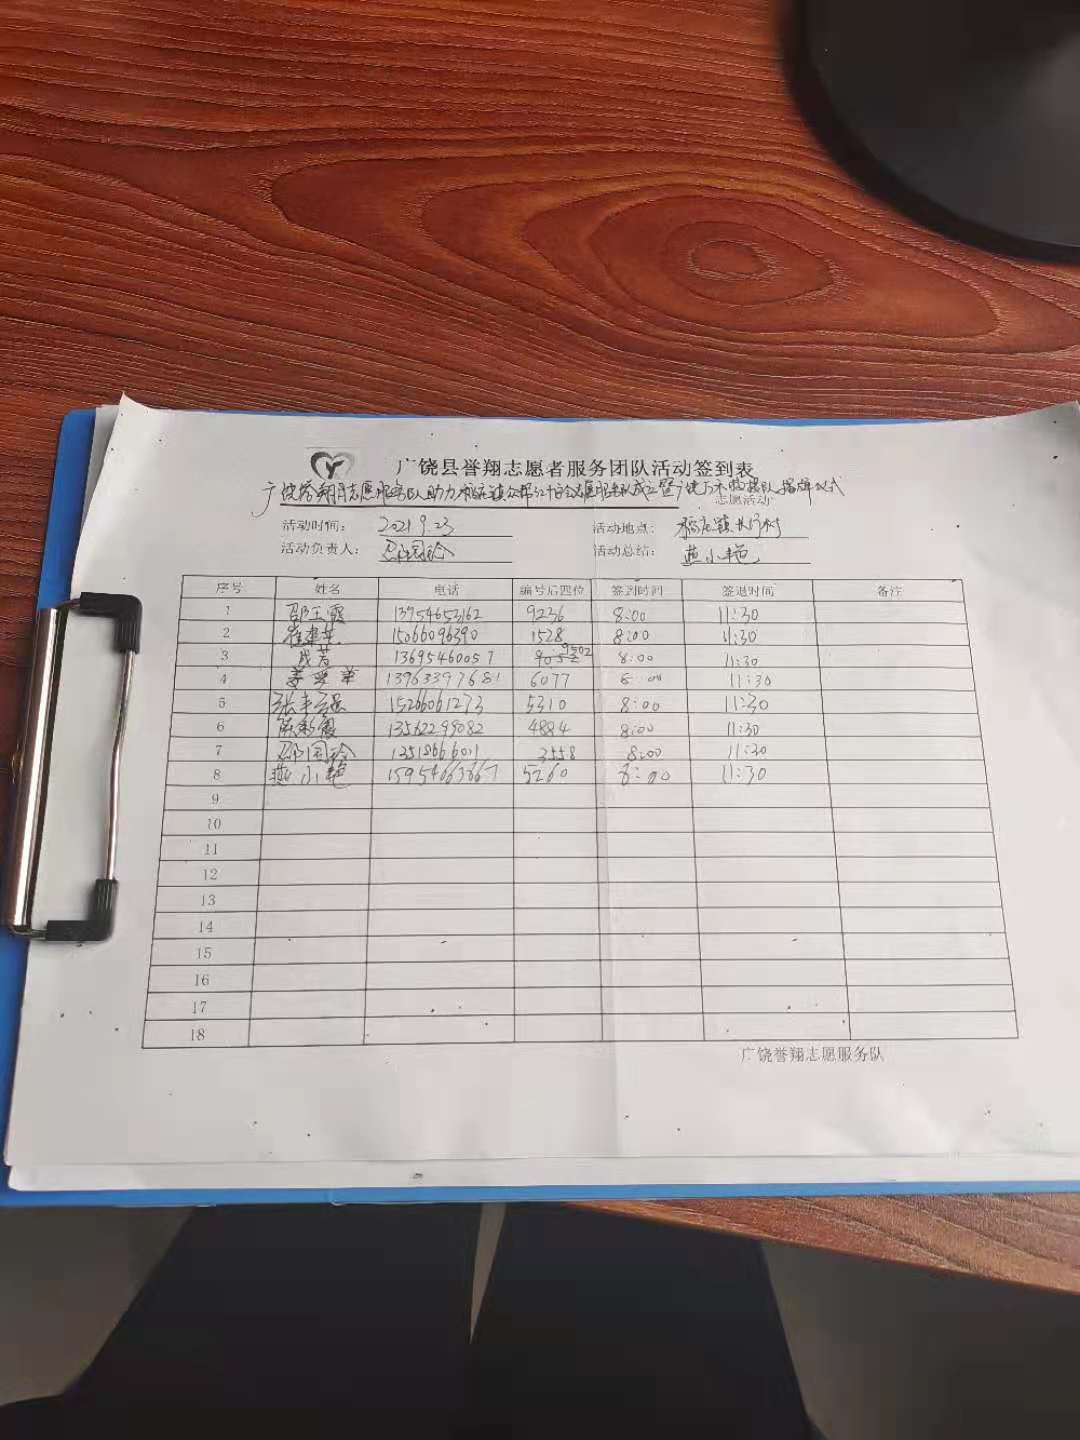 广饶县誉翔志愿者服务团队活动签到表
广饶誉翔志愿服务队助力稻庄镇 志愿服务队成立暨 揭牌仪式
志愿活动
活动时间： 2021 9.23 活动地点： 稻庄镇 村
活动负责人： 邵国玲 活动总结： 燕小艳
序号 姓名 电话 编号后四位 签到时间 签退时间 备注
1 邵玉霞 13954653162 9236 8:00 11:30
2 崔建 15066096390 1528 8:00 11:30
3 成芳 13695460057 9502 8:00 11:30
4 13963397681 6077 8:00 11:30
5 张 15266061273 5310 8:00 11:30
6 陈彩霞 13562299082 4884 8:00 11:30
7 邵国玲 3558 8:00 11:30
8 燕小艳 15954663667 5260 8:00 11:30
9
10
11
12
13
14
15
16
17
18
广饶誉翔志愿服务队